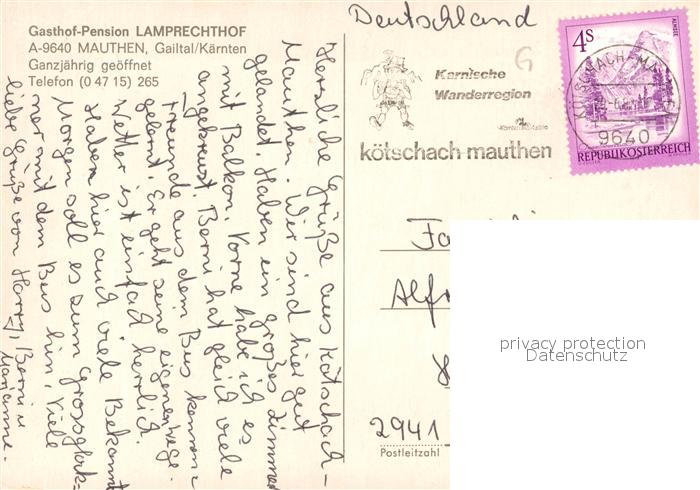 Gasthof-Pension LAMPRECHTHOF
A-9640 MAUTHEN, Gailtal/Kärnten
Ganzjährig geöffnet
Telefon (0 47 15) 265
Herzliche Grüße aus Kötschach-
Mauthen. Wir sind hier gut
gelandet. Haben ein großes Zimmer
mit Balkon. Vorne habe ich es
angekreuzt. Berni hat gleich viele
Freunde aus dem Bus kennen-
gelernt. Er geht seine eigenen Wege.
Wetter ist einfach herrlich.
Haben hier auch viele Bekannt
Morgen soll es zum Grossglock-
ner mit dem Bus hin. Viele
liebe Grüße von Harry, Berni u
Marianne.
Deutschland
6
Karnische
Wanderregion
kötschach-mauthen
4S
ALMSEE
KÖTSCHACH-MAUTHEN
9640
REPUBLIK ÖSTERREICH
Fa
Alfr
2941
Postleitzahl
privacy protection
Datenschutz